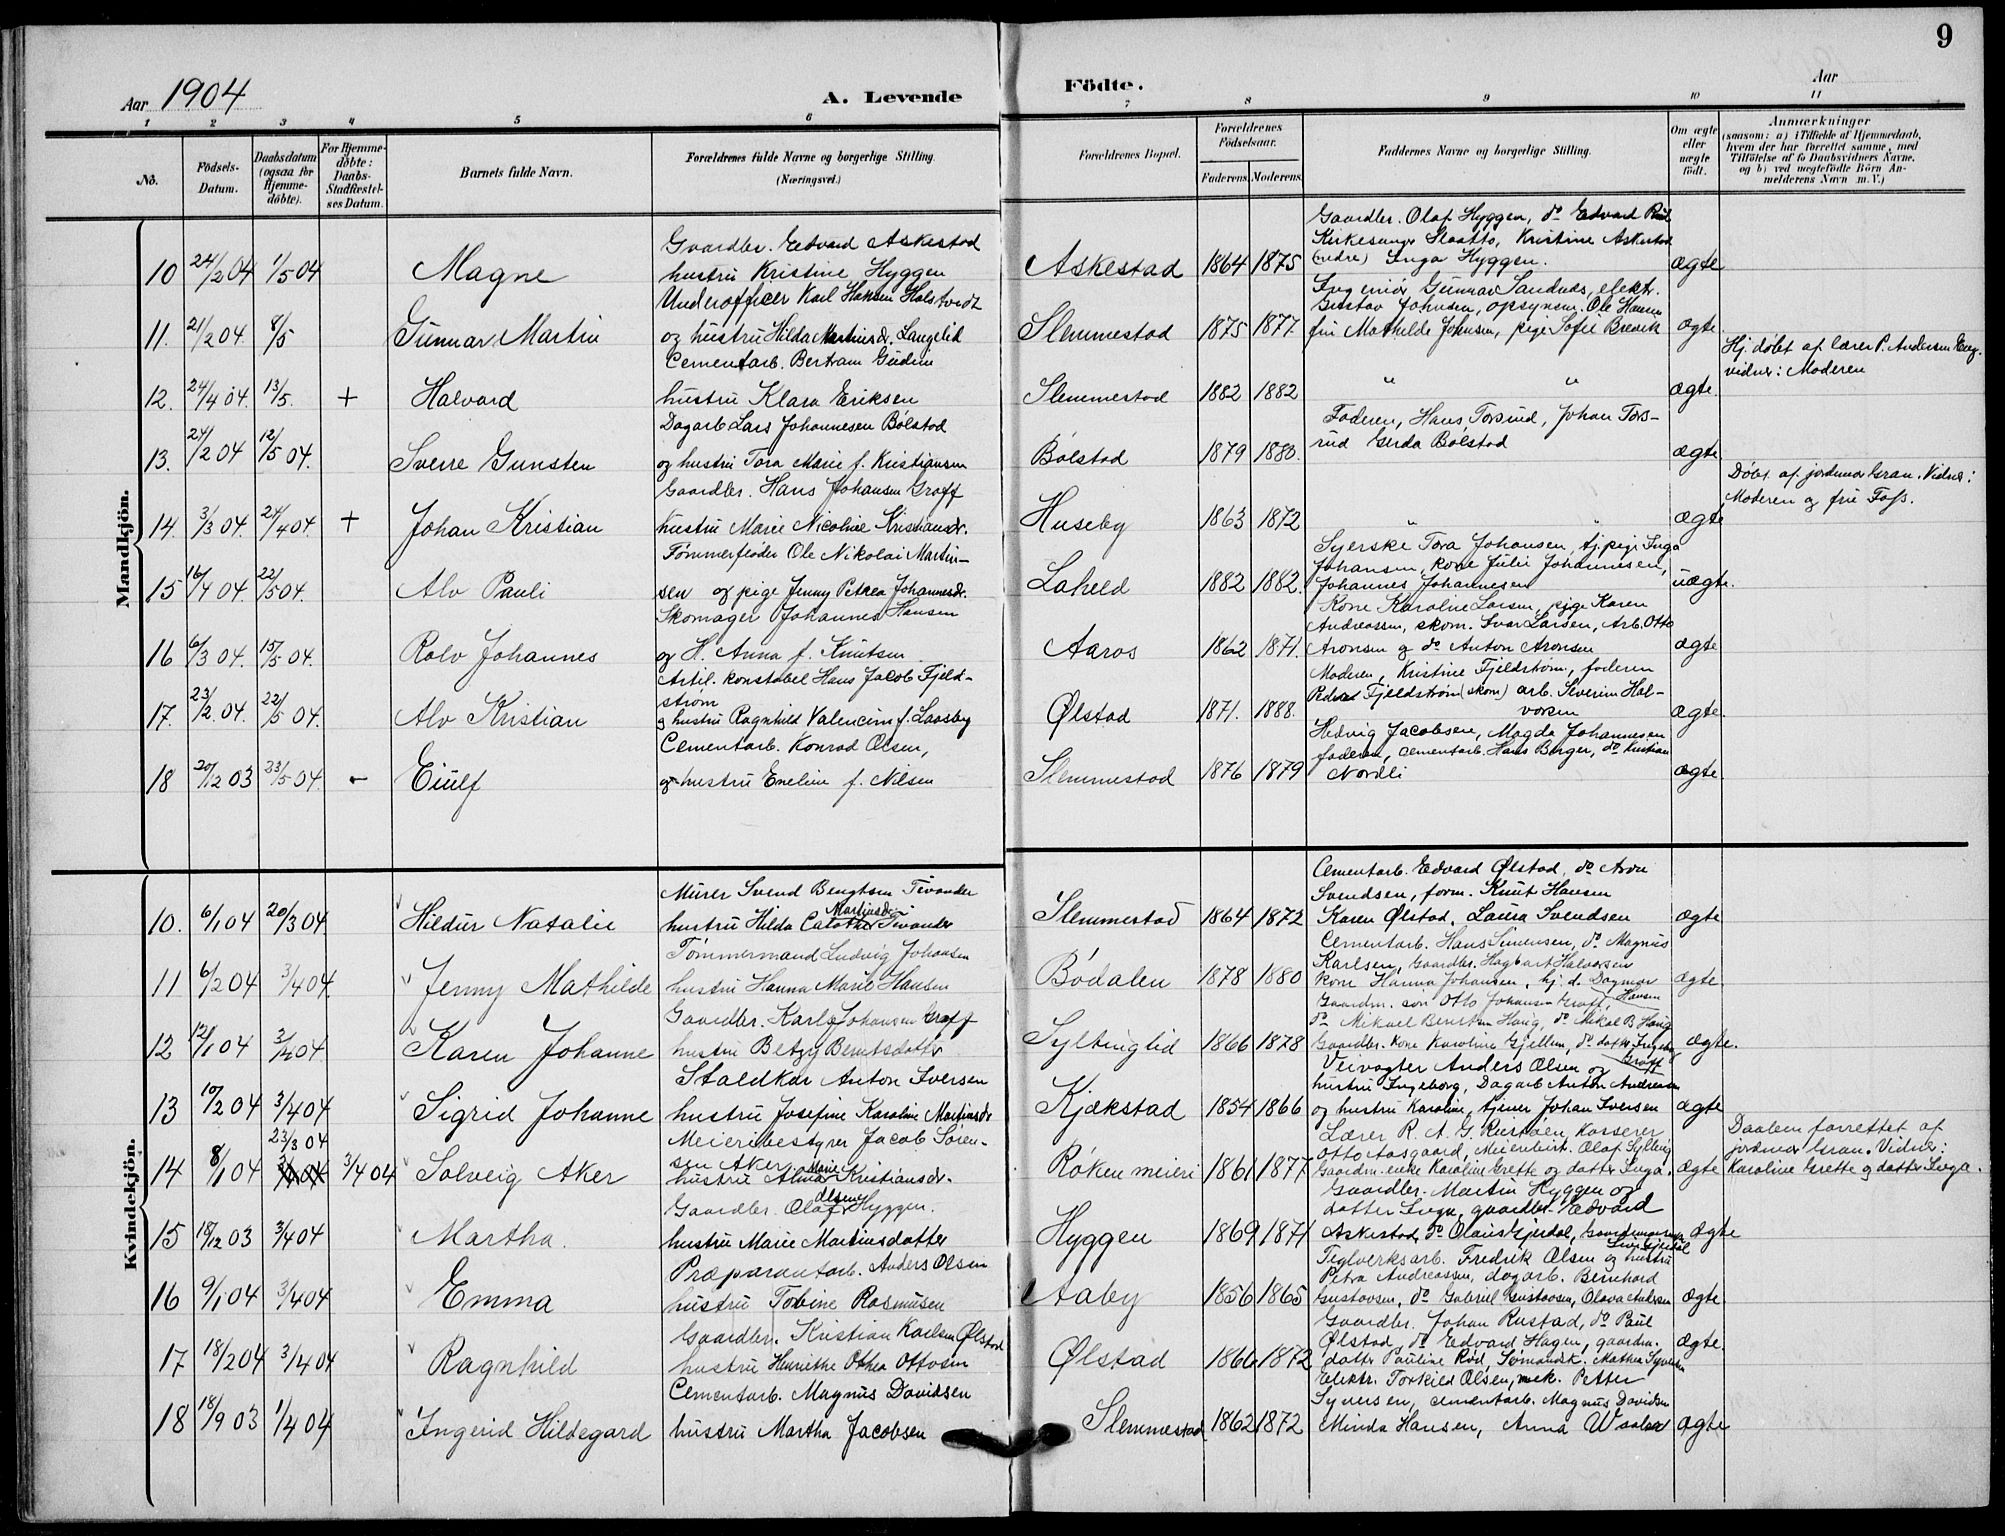 9
Aar 1904
A. Levende Födte.
Aar
1 2 3 4 5 6 7 8 9 10 11
No.
Födsels-Datum.
Daabsdatum (ogsaa for Hjemme-döbte).
For Hjemme-döbte: Daabs-Stadfæstel-ses Datum.
Barnets fulde Navn.
Forældrenes fulde Navne og borgerlige Stilling.
(Næringsvei.)
Forældrenes Bopæl.
Forældrenes Födselsaar.
Faderens. Moderens.
Faddernes Navne og borgerlige Stilling.
Om ægte eller uægte födt.
Anmærkninger
(saasom: a) i Tilfælde af Hjemmedaab, hvem der har forrettet samme, med Tilföielse af to Daabsvidners Navne, og b) ved uægtefödte Börn Anmelderens Navn m. V.)
Mandkjön.
Gaardbr. Edvard Askestad
Gaardbr. Olaf Hyggen, do Edvard
Kirkesanger Slaatto, Kristine Askestad
10 24/2 04 1/5 04 Magne hustru Kristine Hyggen Askestad 1864 1875 (nedre) Inga Hyggen. ægte
Underofficer Karl Hansen Holstvedt
Ingeniør Gunnar Sandnæs, elektr.
Gustav Johnsen, opsynsm. Ole Hansen
11. 21/2 04. 8/5 Gunnar Martin og hustru Hilda Martinsdr. Langelid Slemmestad 1875 1877. fru Mathilde Johnsen, pige Sofie Brevik ægte.
Cementarb. Bertram Gudim
Hj. døbt af lærer P. Andersen
vidner: Moderen
12. 24/4 04. 13/5. + Halvard hustru Klara Eriksen Slemmestad 1882 1882 " " ægte.
Dagarb Lars Johannesen Bölstad
Faderen, Hans Torsrud, Johan Tors-
13. 24/2 04 12/5 04. Sverre Gunsten og hustru Tora Marie f. Kristiansen Bölstad 1879 1880. rud Gerda Bölstad ægte
Gaardbr. Hans Johansen Graff
Döbt af jordmor Gran. Vidner:
Moderen og fru Foss.
14. 3/3 04. 24/4 04. + Johan Kristian hustru Marie Nicoline Kristiansdr. Huseby 1863 1872 " " ægte
Tømmerfløder Ole Nikolai Martin-
Syerske Tora Johansen, tj. pige Inga
Johansen, kone Julie Johannesen,
15 16/4 04. 22/5 04. Alv Pauli sen og pige Jenny Petrea Johannesdr. Laheld 1882 1882. Johannes Johannesen uægte.
Skomager Johannes Hansen
Kone Karoline Larsen, pige Karen
Andreassen, skom. Ivar Larsen, Arb. Otto
16 6/3 04. 15/5 04. Rolv Johannes og H. Anna f. Knutsen Aaros 1862 1871. Aronsen og do Anton Aronsen ægte
Artil. konstabel Hans Jacob Fjeld-
strøm
Moderen, Kristine Fjeldstrøm, faderen
Fjeldstrøm (skom) arb. Severin Hal-
vorsen
17. 23/2. 04. 22/5 04. Alv Kristian hustru Ragnhild f. Laasby Ølstad 1871. 1888. ægte.
Cementarb. Konrad Olsen,
Hedvig Jacobsen, Magda Johannesen
faderen, cementarb. Hans Berger, do Kristian
18 20/12 03 23/5 04. - Eiulf og hustru Emeline f. Nilsen Slemmestad 1876 1879 Nordli ægte.
Kvindekjön.
Murer Svend Bengtsen Tivander
Cementarb. Edvard Ølstad, do Aron
Svendsen, form. Knut Hansen
10. 6/1 04 20/3 04 Hildur Natalie hustru Hilda Martinsdr. Tivander Slemmestad 1864 1872 Karen Ølstad, Laura Svendsen ægte
Tømmermand Ludvig Johansen
Cementarb. Hans Simensen, do Magnus
Karlsen, Gaardbr. Hagbart Halvorsen
11 6/2 04 3/4 04. Jenny Mathilde hustru Hanna Marie Hansen Bödalen 1878 1880 kone Hanna Johansen, hj. d. Dagmar Hansen ægte
Gaardbr. Karl Johansen Graff
Gaardm. søn Otto Johansen Graff,
do Mikael Berntsen Haug, do Mikal B Haug
12 12/1 04 3/4 04 Karen Johanne hustru Betzy Berntsdatter Syltinglid 1866 1878 Gaardbr. kone Karoline Gjellum, do datter Ingeborg Graff ægte.
Staldkar Anton Iversen
Veivogter Anders Olsen og
hustru Ingeborg, Dagarb Anton Andresen
13 10/2 04 3/4 04 Sigrid Johanne hustru Josefine Karoline Martinsdr Kjækstad 1854 1866 og hustru Karoline, tjener Johan Iversen ægte
Meieribestyrer Jacob Sören-
sen Aker
Lærer R. A. G. Rustaden, kasserer
Otto Aasgaard, Meieribest. Olaf Sylling
Daaben forrettet af
jordmor Gran. Vidner:
14 8/1 04 23/3 04 3/4 04 Solveig Aker hustru Alma Marie Kristiansdr. Röken meieri 1861 1877 Gaardm. enke Karoline Grette og datter Inga. ægte Karoline Grette og datter Inga.
Gaardbr. Olaf Olsen Hyggen.
Gaardbr. Martin Hyggen og
datter Inga, gaardbr. Edvard
15 18/12 03 3/4 04 Martha. hustru Marie Martinsdatter Hyggen 1869 1871 Askestad, do Olaus Gjerdal, ægte
Præparantarb. Anders Olsen
Teglverksarb. Fredrik Olsen og hustru
Petra Andreassen, dagarb. Bernhard
16 9/1 04 3/4 04 Emma hustru Tobine Rasmusen Aaby 1856 1865 Gustavsen, do Gabriel Gustavsen, Olava Andersen ægte.
Gaardbr. Kristian Karlsen Ølstad
Gaardbr. Johan Rustad, do Paul
Ølstad, do Edvard Hagen, gaardm.
17 18/2 04 3/4 04 Ragnhild hustru Henriette Othea Ottosen Ølstad 1866 1872 datter Pauline Rød, Sømandsk. Mathea Syversen ægte.
Cementarb. Magnus Davidsen
Elektr. Torkild Olsen, mek. Petter
Syversen, cementarb. Magnus Davidsen
18 18/9 03 1/4 04 Ingerid Hildegard hustru Martha Jacobsen Slemmestad 1862 1872 Minda Hansen, Anna ægte